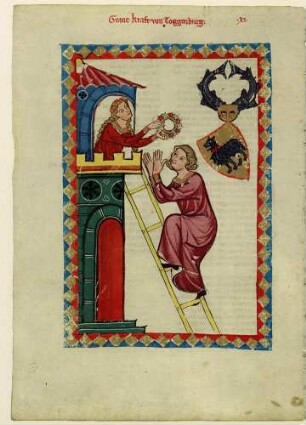 Graue kraft von Toggenburg. xi.